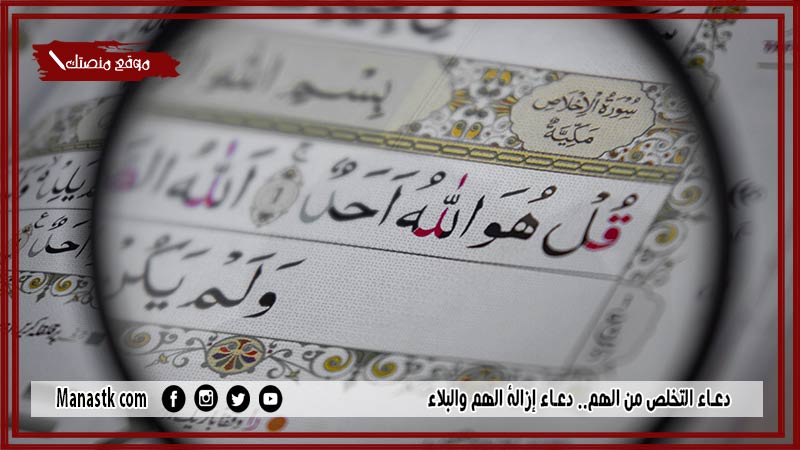 موقع منصتك
بِسْمِ اللّٰهِ
سُورَةُ الْاِخْلَاصِ
مَكِّيَّةٌ
قُلْ هُوَ اللّٰهُ اَحَدٌ ۚ ١ اَللّٰهُ
وَلَمْ يَكُنْ
اَحَدٌ
دعاء التخلص من الهم.. دعاء إزالة الهم والبلاء
Manastk com